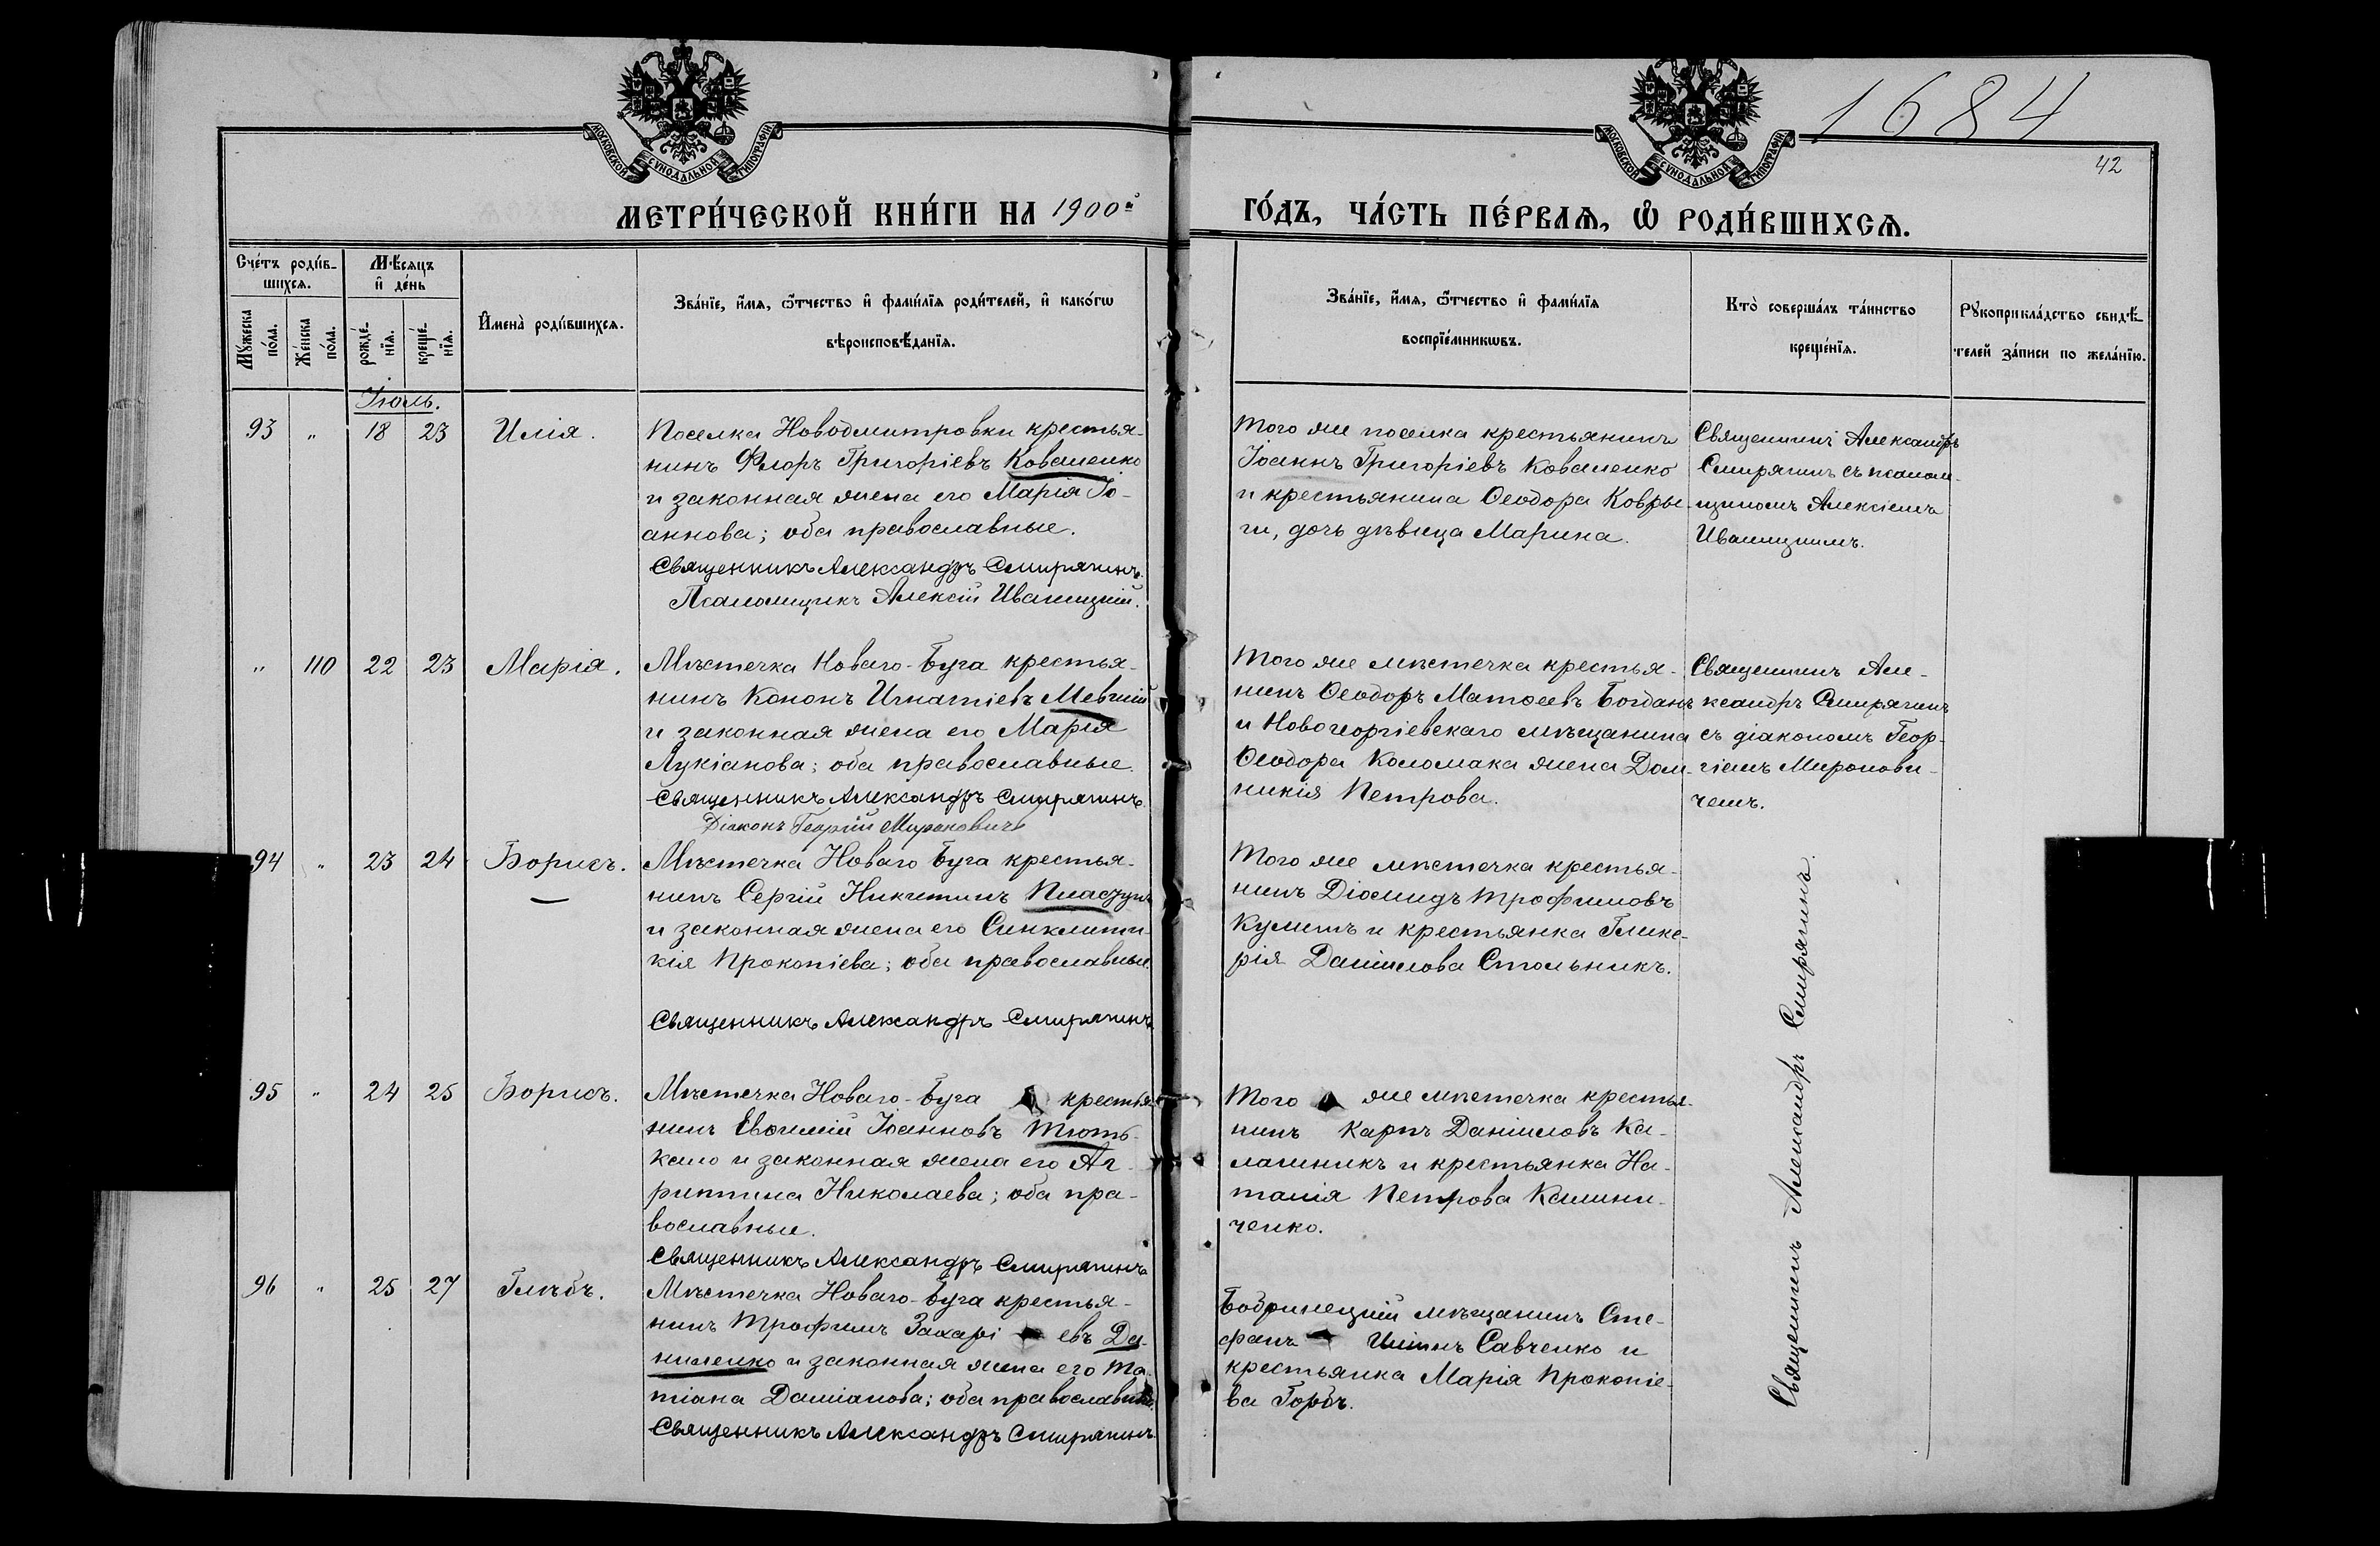 1684
42
МОСКОВСКОЙ СѴНОДАЛЬНОЙ ТИПОГРАФІИ
МОСКОВСКОЙ СѴНОДАЛЬНОЙ ТИПОГРАФІИ
МЕТРИ́ЧЕСКОЙ КНИ́ГИ НА 1900й
ГО́ДЪ, ЧА́СТЬ ПЕ́РВАѦ, Ѡ҆ РОДИ́ВШИХСѦ.
Сче́тъ роди́в-
шихсѧ.
Мѣ́сѧцъ
и҆ де́нь
Мꙋ́жеска
по́ла.
Же́нска
по́ла.
рожде́-
нїѧ.
креще́-
нїѧ.
И҆мена̀ роди́вшихсѧ.
Зва́нїе, и҆́мѧ, ѻ҆́тчество и҆ фами́лїѧ роди́телей, и҆ како́гѡ
вѣроисповѣ́данїѧ.
Зва́нїе, и҆́мѧ, ѻ҆́тчество и҆ фами́лїѧ
воспрїе́мникѡвъ.
Кто̀ соверша́лъ та́инство
креще́нїѧ.
Рꙋкоприкла́дство свидѣ́-
телей за́писи по жела́нїю.
Іюль.
93 " 18 23 Илія.
Поселка Новодмитровки крестья-
нинъ Флоръ Григоріевъ Коваленко
и законная жена его Марія Іо-
аннова; оба православные.
Священникъ Александръ Смирягинъ.
Псаломщикъ Алексій Иваницкій.
Того же поселка крестьянинъ
Іоаннъ Григоріевъ Коваленко
и крестьянина Ѳеодора Ковры-
ги, дочь дѣвица Марина.
Священникъ Александръ
Смирягинъ съ псалом-
щикомъ Алексіемъ
Иваницкимъ.
" 110 22 23 Марія.
Мѣстечка Новаго-Буга крестья-
нинъ Кононъ Игнатіевъ
и законная жена его Марія
Лукіанова; оба православные.
Священникъ Александръ Смирягинъ.
Діаконъ Георгій Мироновичъ
Того же мѣстечка крестья-
нинъ Ѳеодоръ Матѳеевъ Богданъ
и Новогеоргіевскаго мѣщанина
Ѳеодора Коломака жена Дом-
никія Петрова.
Священникъ Але-
ксандръ Смирягинъ
съ діакономъ Геор-
гіемъ Миронови-
чемъ.
94 " 23 24 Борисъ.
Мѣстечка Новаго Буга крестья-
нинъ Сергій Никитинъ Пласзунъ
и законная жена его Синклити-
кія Прокопіева; оба православные.
Священникъ Александръ Смирягинъ
Того же мѣстечка крестья-
нинъ Діомидъ Трофимовъ
Кулишъ и крестьянка Глике-
рія Даніилова Стольникъ.
95 " 24 25 Борисъ.
Мѣстечка Новаго-Буга крестья-
нинъ Евѳимій Іоанновъ Тють-
кало и законная жена его Аг-
риппина Николаева; оба пра-
вославные.
Священникъ Александръ Смирягинъ
Того же мѣстечка крестья-
нинъ Карпъ Даніиловъ Ка-
лашникъ и крестьянка На-
талія Петрова Калини-
ченко.
96 " 25 27 Глѣбъ.
Мѣстечка Новаго-Буга крестья-
нинъ Трофимъ Захаріевъ Да-
ниленко и законная жена его Та-
тіана Даміанова; оба православные.
Священникъ Александръ Смирягинъ.
Бобринецкій мѣщанинъ Сте-
фанъ Ильинъ Савченко и
крестьянка Марія Прокопіе-
ва Горбъ.
Священникъ Александръ Смирягинъ.